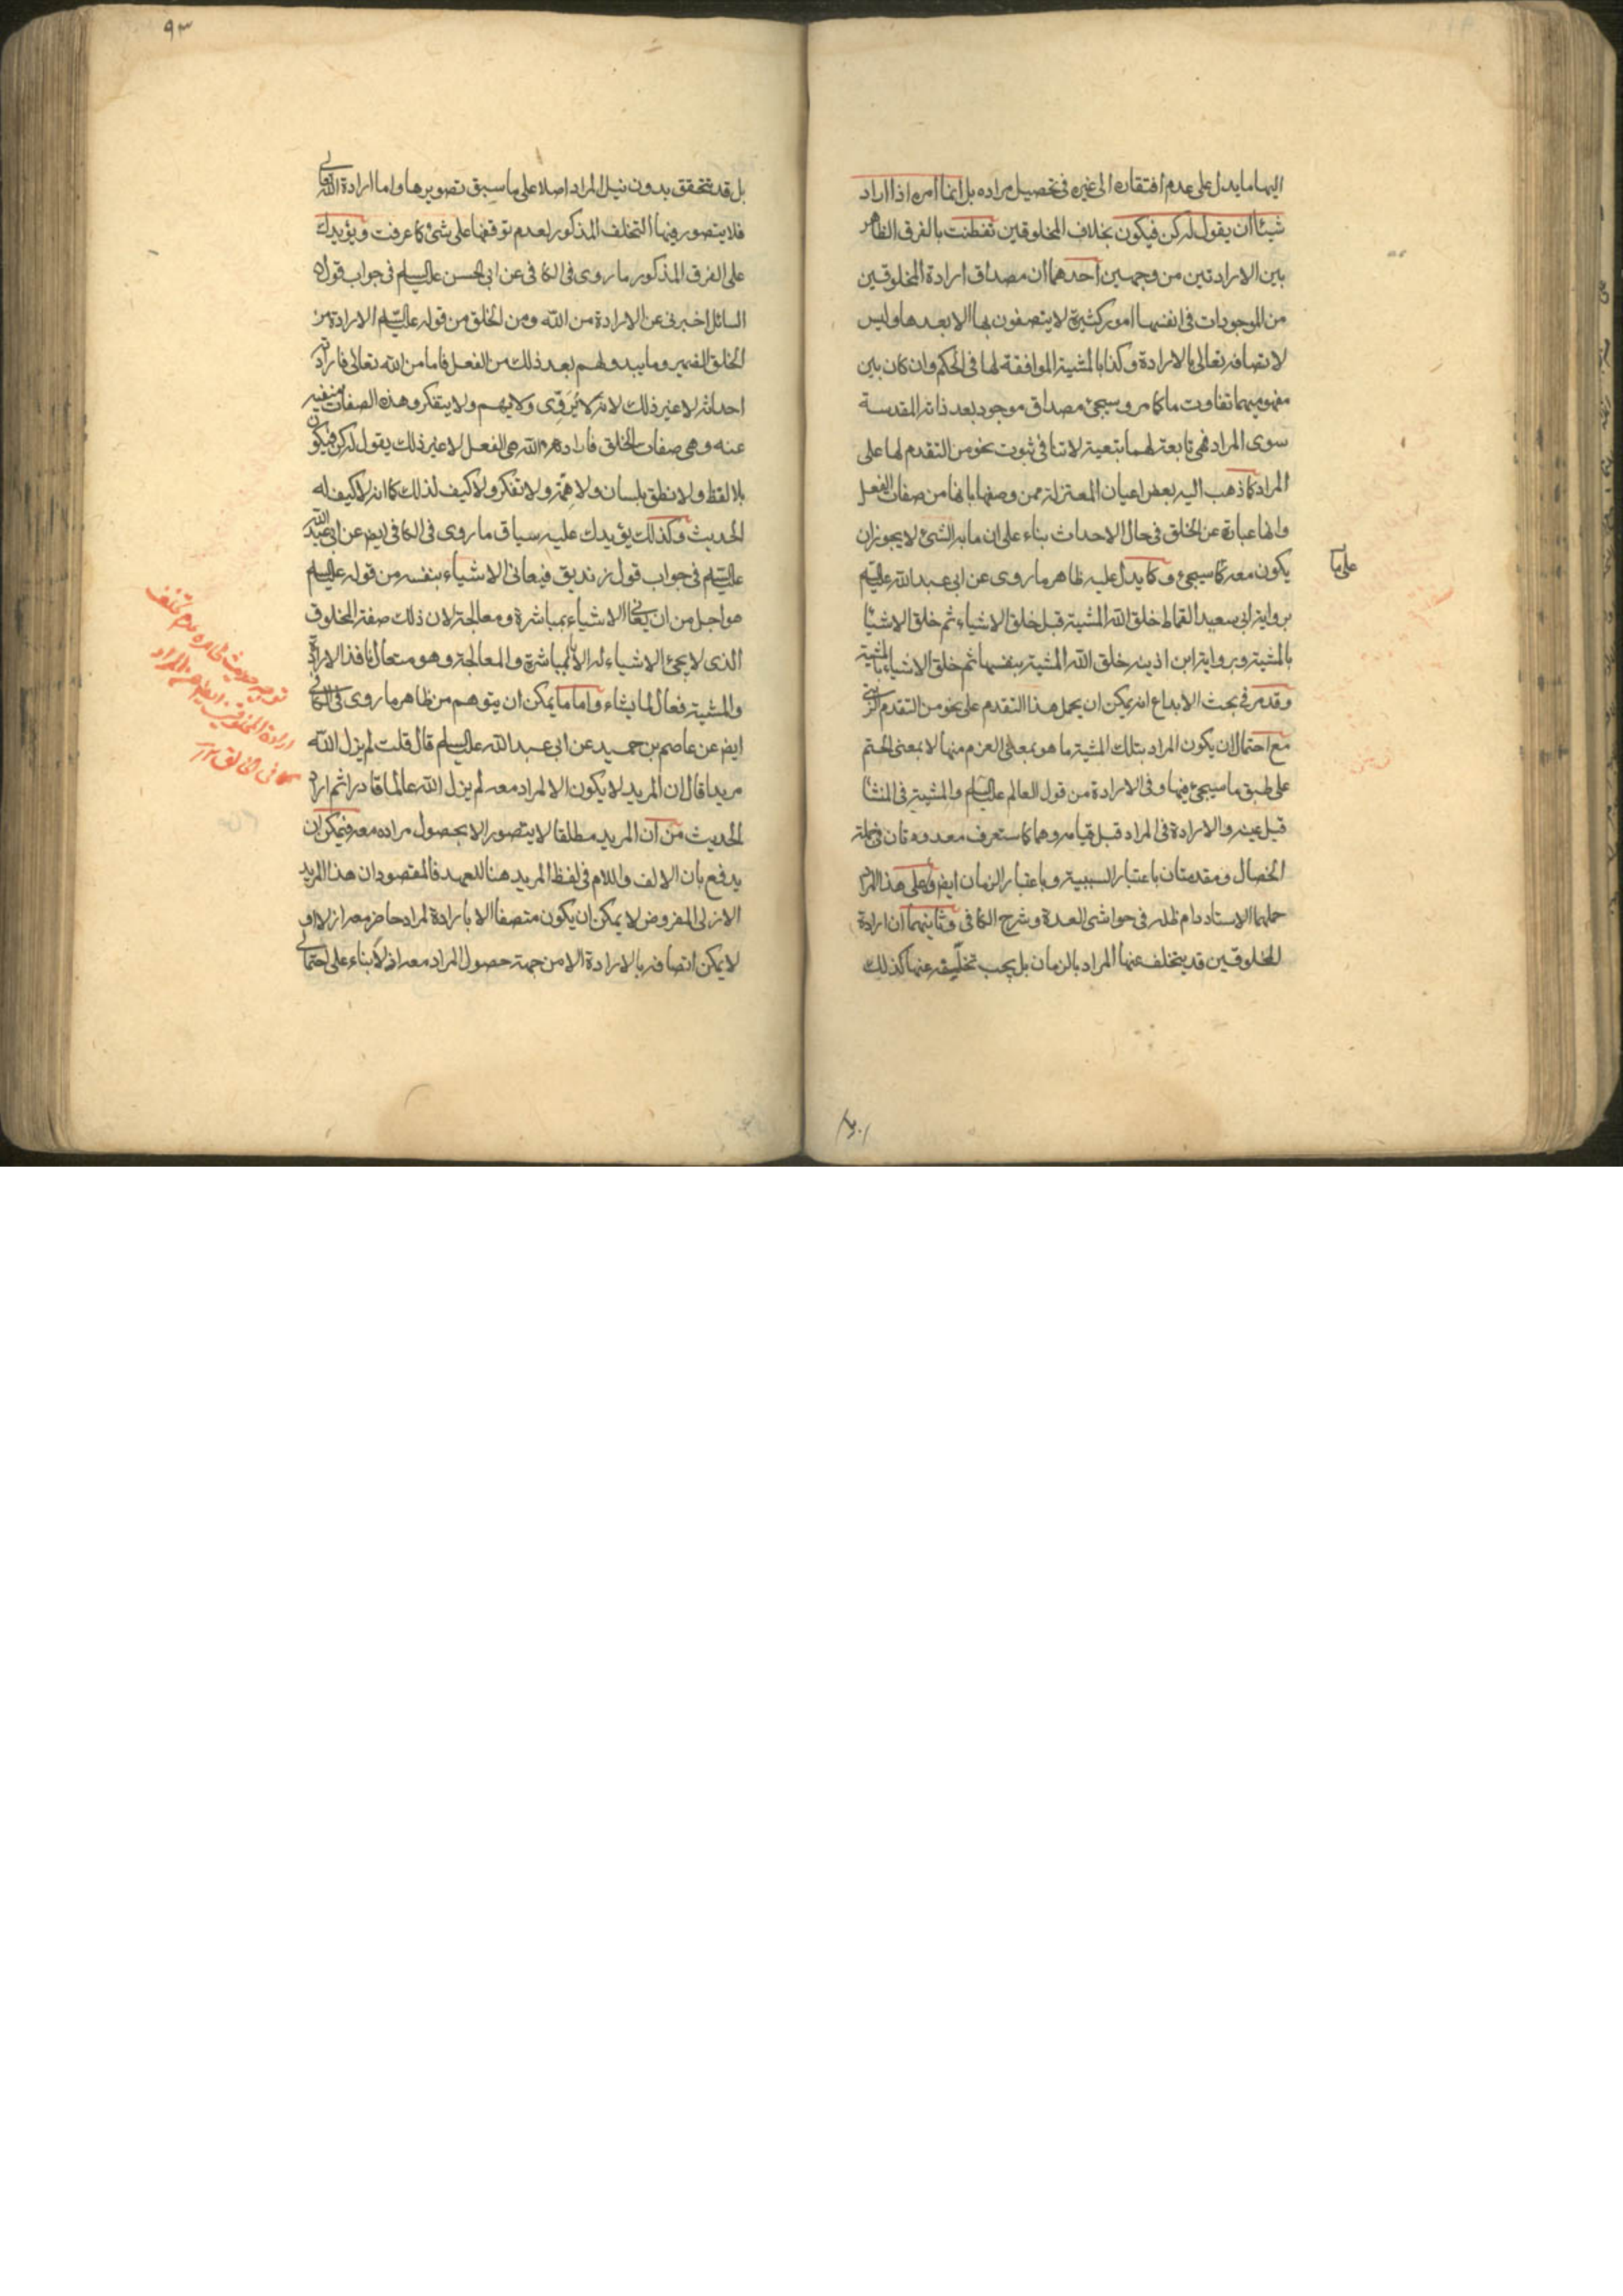 اليها ما يدل على عدم افتقاره الى غيره فى تحصيل مراده بل انما امره اذا اراد
شيئا ان يقول له كن فيكون بخلاف المخلوقين تفطنت بالفرق الظاهر
بين الارادتين من وجهين احدهما ان مصداق ارادة المخلوقين
من الموجودات فى انفسها امور كثيرة لا يتصفون بها الا بعدها وليس
لاتصافه تعالى بالارادة وكذا بالمشية الموافقة لها فى الحكم وان كان بين
مفهوميهما تفاوت ما كما مر وسيجئ مصداق موجود بعد ذاته المقدسة
سوى المراد فهى تابعة لهما بتبعية لا تنافى ثبوت نحو من التقدم لها على
المراد كما ذهب اليه بعض اعيان المعتزلة ممن وصفها بانها من صفات الفعل
وانها عبارة عن الخلق فى حال الاحداث بناء على ان ما به الشئ لا يجوز ان
يكون معه كما سيجئ وكما يدل عليه ظاهر ما روى عن ابى عبد الله عليه السلم
على ما
برواية ابى سعيد القماط خلق الله المشية قبل خلق الاشياء ثم خلق الاشيا
بالمشية وبرواية ابن اذينه خلق الله المشية بنفسها ثم خلق الاشياء بالمشية
وقد مر فى بحث الابداع انه يمكن ان يحمل هذا التقدم على نحو من التقدم الرتبى
مع احتمال ان يكون المراد بتلك المشية ما هو بمعنى العزم منها لا بمعنى الحتم
على طبق ما سيجئ فيها وفى الارادة من قول العالم عليه السلم والمشية فى المنشا
قبل عينه والارادة فى المراد قبل قيامه وهما كما ستعرف معدودتان فى جملة
الخصال ومقدمتان باعتبار السببية وباعتبار الزمان ايضا وعلى هذا المراد
حملهما الاستاد دام ظله فى حواشى العدة وشرح الكافى وثانيهما ان ارادة
المخلوقين قد يتخلف عنها المراد بالزمان بل يجب تخلّفه عنها كذلك
٩٣
بل قد تتحقق بدون نيل المراد اصلا على ما سبق تصويرها واما ارادة الله تعالى
فلا يتصور فيها التخلف المذكور لعدم توقفها على شئ كما عرفت ويؤيدك
على الفرق المذكور ما روى فى الكافى عن ابى الحسن عليه السلم فى جواب قول
السائل اخبرنى عن الارادة من الله ومن الخلق من قوله عليه السلم الارادة من
الخلق الضمير وما يبدو لهم بعد ذلك من الفعل فاما من الله تعالى فارادته
احداثه لا غير ذلك لانه لا يُرَوِّى ولا يهم ولا يتفكر وهذه الصفات منفية
عنه وهى صفات الخلق فارادة الله هى الفعل لا غير ذلك يقول له كن فيكون
بلا لفظ ولا نطق بلسان ولا هِمّة ولا تفكر ولا كيف لذلك كما انه لا كيف له
الحديث وكذلك يؤيدك عليه سياق ما روى فى الكافى ايضا عن ابى عبد الله
عليه السلم فى جواب قول زنديق فيعانى الاشياء بنفسه من قوله عليه السلم
هو اجل من ان يعانى الاشياء بمباشرة ومعالجة لان ذلك صفة المخلوق
الذى لا يجئ الاشياء له الا بالمباشرة والمعالجة وهو متعال نافذ الارادة
والمشية فعال لما يشاء واما ما يمكن ان يتوهم من ظاهر ما روى فى الكافى
ايضا عن عاصم بن حميد عن ابى عبد الله عليه السلم قال قلت لم يزل الله
مريدا قال ان المريد لا يكون الا لمراد معه لم يزل الله عالما قادرا ثم اراد
الحديث من ان المريد مطلقا لا يتصور الا بحصول مراده معه فيمكن ان
يدفع بان الالف واللام فى لفظ المريد هنا للعهد فالمقصود ان هذا المريد
الازلى المفروض لا يمكن ان يكون متصفا الا بارادة لمراد حاضر معه ازلا او
لا يمكن اتصافه بالارادة الا من جهة حصول المراد معه اذ لا بناء على احتمالى
توجيه حديث ظاهره عدم تخلف
المراد
ارادة المخلوقين ايضا عن
كما فى الخالق